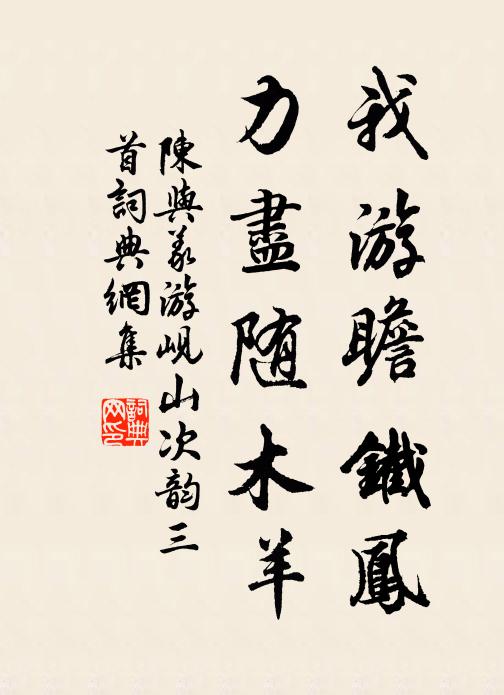 我游瞻鐵鳳
力盡随木羊
陳與義游峴山次韵三
首詞典網集
詞典网印